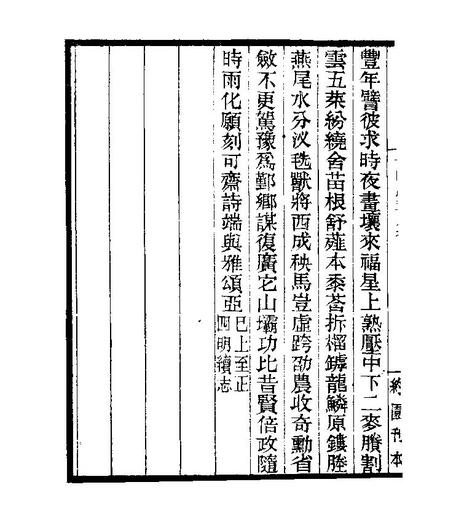 豐年譬彼求時夜畫壤來福星上熟壓中下二麥賸割
雲五萊紛繞舍苗根舒雍本黍莟拆榴鏬龍鱗原鏤塍
燕尾水分汊毨獸將西成秧馬豈虛跨劭農收奇勳省
斂不更駕豫爲鄞鄉謀復廣它山壩功比昔賢倍政隨
時雨化願刻可齋詩端與雅頌亞
巳上至正
四明續志
約園刊本